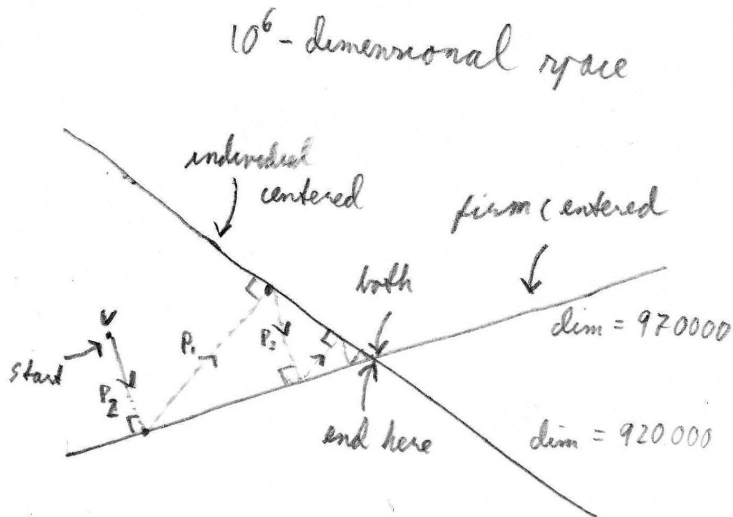 10⁶-dimensional space
individual
centered
firm centered
both
dim = 970000
v
start
P₂
P₁
P₂
end here
dim = 920.000